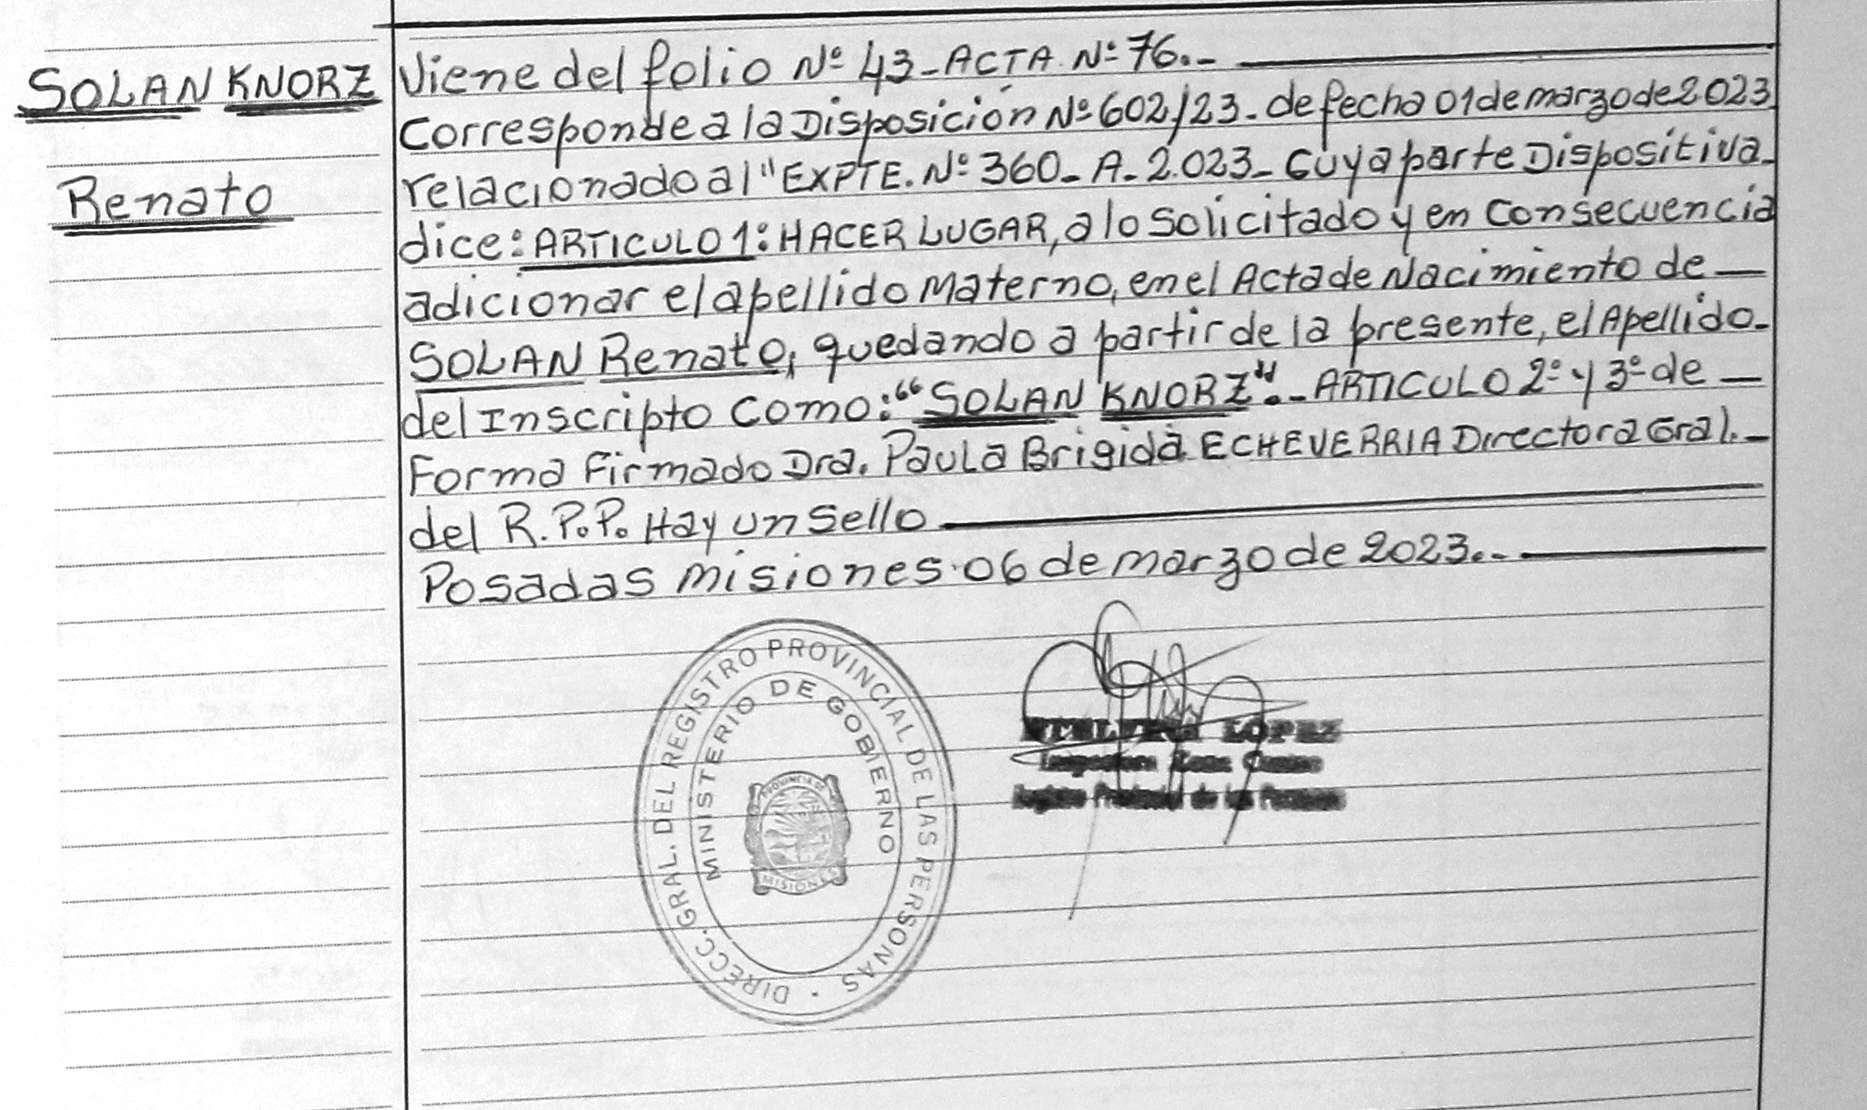 SOLAN KNORZ
Renato
Viene del folio Nº 43-ACTA Nº 76.-
Corresponde a la Disposición Nº 602/23. de fecha 01 de marzo de 2023
relacionado al "EXPTE. Nº 360_ A_ 2.023_ cuya parte Dispositiva_
dice: ARTICULO 1: HACER LUGAR, a lo solicitado y en consecuencia
adicionar el apellido Materno, en el Acta de Nacimiento de
SOLAN Renato, quedando a partir de la presente, el Apellido_
del Inscripto como: "SOLAN KNORZ".- ARTICULO 2º y 3º de
Forma Firmado Dra. Paula Brigida ECHEVERRIA Directora Gral.
del R.P.P. Hay un sello
Posadas Misiones 06 de marzo de 2023..-
DIRECC. GRAL. DEL REGISTRO PROVINCIAL DE LAS PERSONAS
MINISTERIO DE GOBIERNO
PROVINCIA D
MISIONES
LOPEZ
Inspectora Zona
Registro Provincial de las Personas